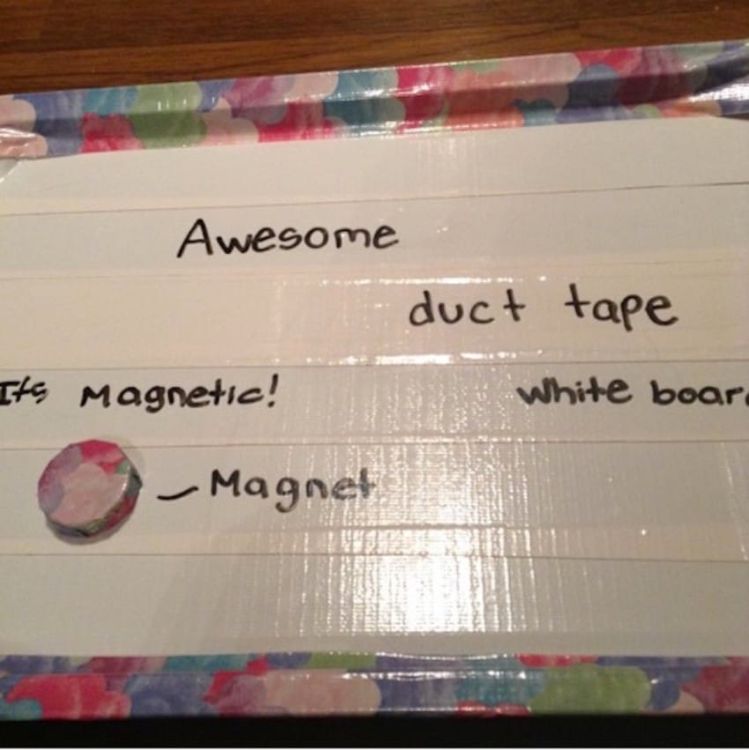 Awesome
duct tape
Its Magnetic!
white boar
- Magnet